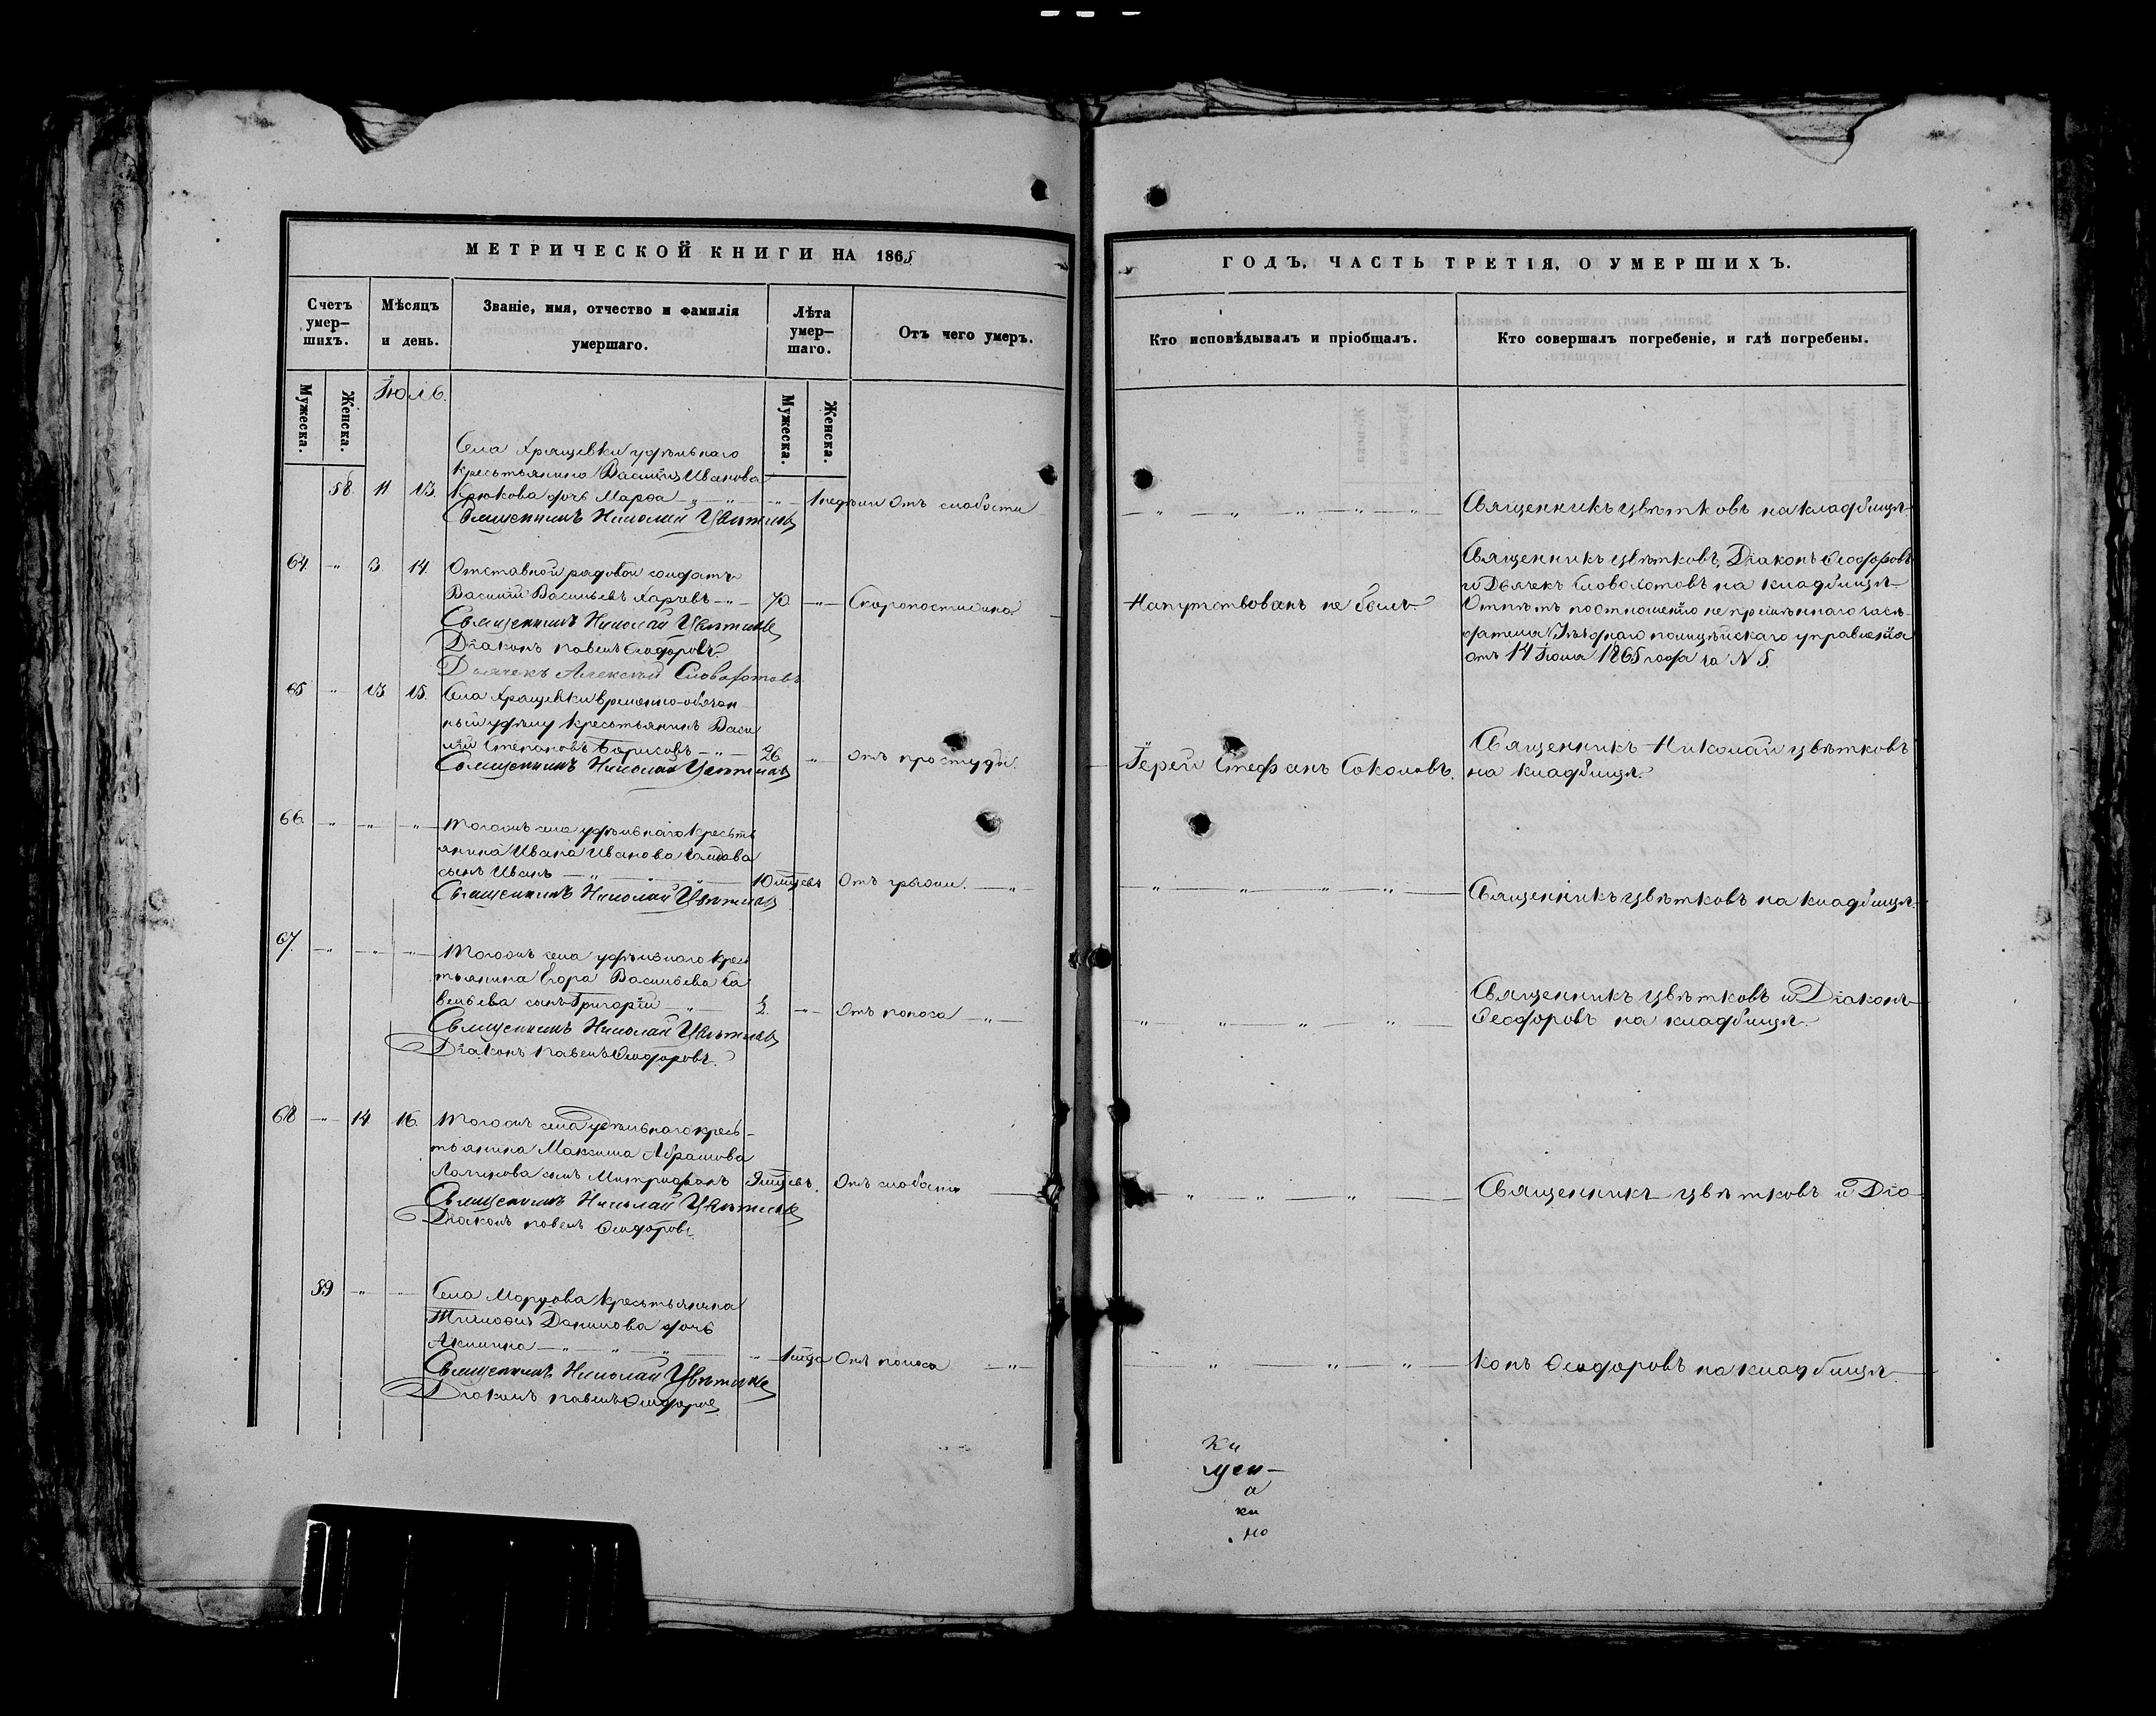 МЕТРИЧЕСКОЙ КНИГИ НА 1865
ГОДЪ, ЧАСТЬ ТРЕТІЯ, О УМЕРШИХЪ.
Счетъ умер-шихъ.
Мѣсяцъ и день.
Званіе, имя, отчество и фамилія умершаго.
Лѣта умер-шаго.
Отъ чего умеръ.
Кто исповѣдывалъ и пріобщалъ.
Кто совершалъ погребеніе, и гдѣ погребены.
Мужеска.
Женска.
Іюль.
Мужеска.
Женска.
Села Хрящевки удѣльнаго
крестьянина Василія Иванова
58. 11 13. Крюкова дочь Марѳа 1 недѣли Отъ слабости Священникъ Цвѣтковъ на кладбищѣ
Священникъ Николай Цвѣтковъ
64. 13 14. Отставной рядовой солдатъ
Василій Васильевъ 70. Скоропостижно Напутствованъ не былъ
Священникъ Николай Цвѣтковъ
Діаконъ Павелъ Ѳеодоровъ
Дьячекъ Алексѣй Словохотовъ
Священникъ Цвѣтковъ, Діаконъ Ѳеодоровъ
и Дьячекъ Словохотовъ на кладбищѣ
Отпѣтъ по отношенію
полицейскаго управленія
отъ 14 Іюля 1865 года за N 5.
65 13 15. Села Хрящевки временно-обязан
ный удѣлу крестьянинъ Васи
лій Степановъ Борисовъ 26 Отъ простуды. Іерей Стефанъ Соколовъ.
Священникъ Николай Цвѣтковъ
Священникъ Николай Цвѣтковъ
на кладбищѣ.
66. Тогожъ села удѣльнаго кресть
янина Ивана Иванова
сынъ Иванъ 10 мѣсяцевъ Отъ грыжи. Священникъ Цвѣтковъ на кладбищѣ.
Священникъ Николай Цвѣтковъ
67. Тогожъ села удѣльнаго крес
тьянина Егора Васильева Са
вельева сынъ Григорій Отъ поноса
Священникъ Николай Цвѣтковъ
Діаконъ Павелъ Ѳеодоровъ.
Священникъ Цвѣтковъ и Діаконъ
Ѳеодоровъ на кладбищѣ.
68 14 16. Тогожъ села удѣльнаго кресь-
тьянина Максима Абрамова
сынъ Митрофанъ 9 мѣсяцевъ. Отъ слабости Священникъ Цвѣтковъ и Діа
Священникъ Николай Цвѣтковъ
Діаконъ Павелъ Ѳеодоровъ.
59 Села Мордова крестьянина
Тимоѳея Данилова дочь
Акилина 1 года Отъ поноса конъ Ѳеодоровъ на кладбищѣ
Священникъ Николай Цвѣтковъ
Діаконъ Павелъ Ѳеодоровъ
ки
щен-
а
ки
но